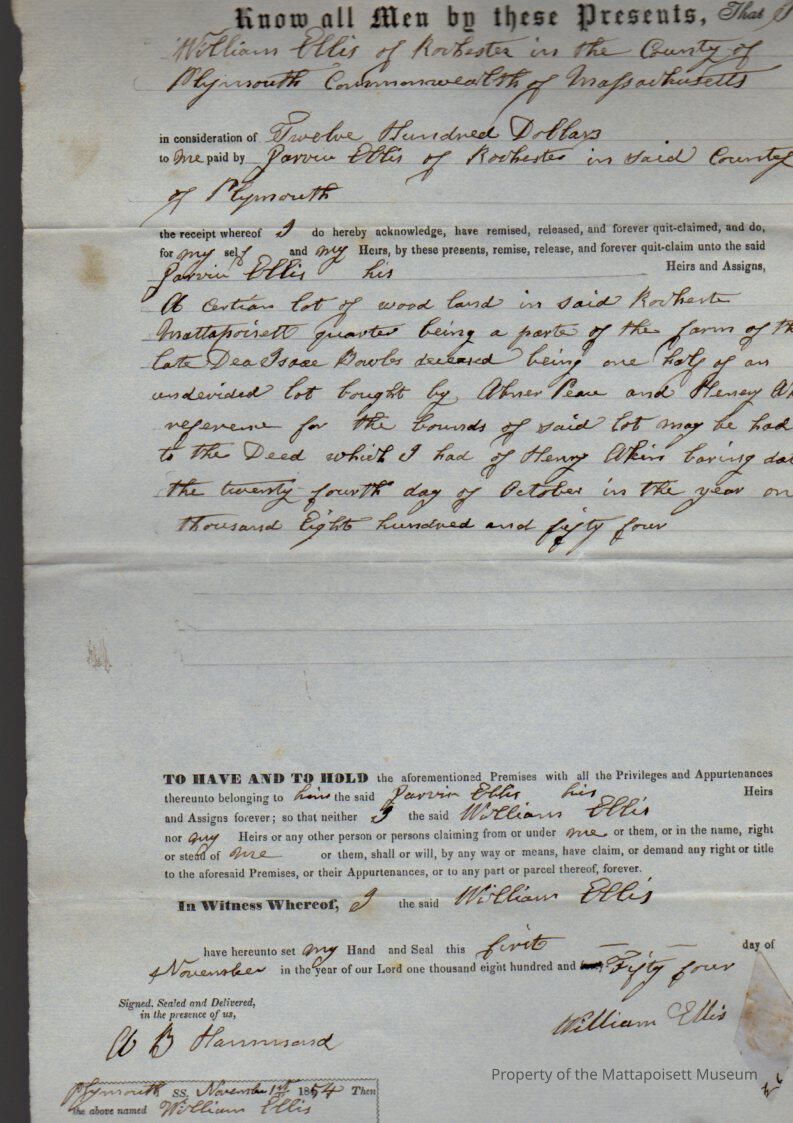 Know all Men by these Presents, That I
William Ellis of Rochester in the County of
Plymouth Commonwealth of Massachusetts
in consideration of Twelve Hundred Dollars
to me paid by Jarvis Ellis of Rochester in said County
of Plymouth
the receipt whereof I do hereby acknowledge, have remised, released, and forever quit-claimed, and do,
for my self and my Heirs, by these presents, remise, release, and forever quit-claim unto the said
Jarvis Ellis his Heirs and Assigns,
A certian lot of wood land in said Rocheste
Mattapoisett quarter being a parte of the farm of th
late Dea Isaac Bowles deceased being one half of an
undivided lot bought by Abner Pease and Henry Ak
referense for the bounds of said lot may be had
to the Deed which I had of Henry Akin baring dat
the twenty fourth day of October in the year on
thousand Eight hundred and fifty four
TO HAVE AND TO HOLD the aforementioned Premises with all the Privileges and Appurtenances
thereunto belonging to him the said Jarvis Ellis his Heirs
and Assigns forever; so that neither I the said William Ellis
nor my Heirs or any other person or persons claiming from or under me or them, or in the name, right
or stead of me or them, shall or will, by any way or means, have claim, or demand any right or title
to the aforesaid Premises, or their Appurtenances, or to any part or parcel thereof, forever.
In Witness Whereof, I the said William Ellis
have hereunto set my Hand and Seal this first day of
November in the year of our Lord one thousand eight hundred and Fifty four
Signed, Sealed and Delivered,
in the presence of us,
William Ellis
W B Hammond
Property of the Mattapoisett Museum
Plymouth SS. November 1st 1854 Then
the above named William Ellis